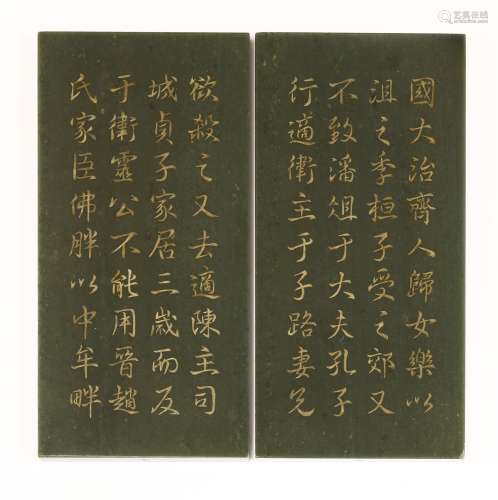 國大治齊人歸女樂以
沮之季桓子受之郊又
不致潘俎于大夫孔子
行適衛主于子路妻兄
欲殺之又去適陳主司
城貞子家居三歲而反
于衛靈公不能用晉趙
氏家臣佛胖以中牟畔